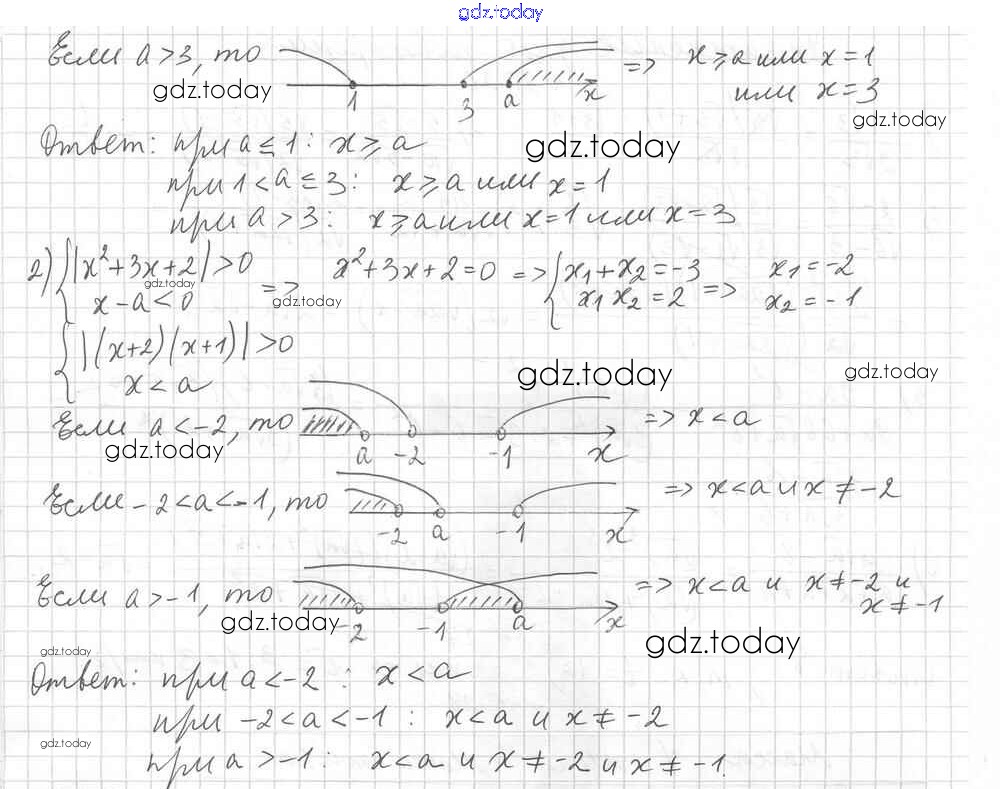 gdz.today
Если a > 3, то 1 3 a x => x ≥ a или x = 1
или x = 3
gdz.today
gdz.today
Ответ: при a ≤ 1: x ≥ a
gdz.today
при 1 < a ≤ 3: x ≥ a или x = 1
при a > 3: x ≥ a или x = 1 или x = 3
2) { |x² + 3x + 2| > 0 x² + 3x + 2 = 0 => { x₁ + x₂ = -3 x₁ = -2
x - a < 0 => x₁ x₂ = 2 => x₂ = -1
gdz.today
gdz.today
{ |(x+2)(x+1)| > 0
x < a
gdz.today
gdz.today
Если a < -2, то a -2 -1 x => x < a
gdz.today
Если -2 < a < -1, то -2 a -1 x => x < a и x ≠ -2
Если a > -1, то -2 -1 a x => x < a и x ≠ -2 и
x ≠ -1
gdz.today
gdz.today
gdz.today
Ответ: при a < -2 : x < a
при -2 < a < -1 : x < a и x ≠ -2
gdz.today
при a > -1: x < a и x ≠ -2 и x ≠ -1.